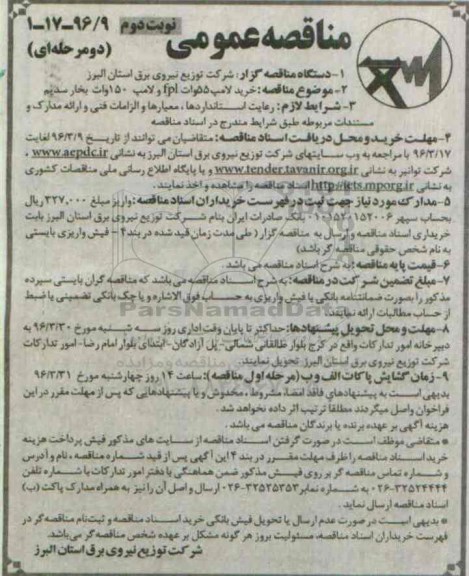 مناقصه عمومی
نوبت دوم
۱-۱۷-۹۶/۹
(دومرحله‌ای)
۱-دستگاه مناقصه گزار: شرکت توزیع نیروی برق استان البرز
۲-موضوع مناقصه: خرید لامپ ۵۵وات fpl و لامپ ۱۵۰وات بخار سدیم
۳-شرایط لازم: رعایت استانداردها، معیارها و الزامات فنی و ارائه مدارک و
مستندات مربوطه طبق شرایط مندرج در اسناد مناقصه
۴-مهلت خرید و محل دریافت اسناد مناقصه: متقاضیان می توانند از تاریخ ۹۶/۳/۹ لغایت
۹۶/۳/۱۷ با مراجعه به وب سایتهای شرکت توزیع نیروی برق استان البرز به نشانی www.aepdc.ir ،
شرکت توانیر به نشانی www.tender.tavanir.org.ir و یا پایگاه اطلاع رسانی ملی مناقصات کشوری
به نشانی http://iets.mporg.ir اسناد مناقصه را مشاهده و اخذ نمایند.
۵-مدارک مورد نیاز جهت ثبت در فهرست خریداران اسناد مناقصه: واریز مبلغ ۳۲۷,۰۰۰ ریال
بحساب سپهر ۰۱۰۱۵۲۰۱۵۲۰۰۶ بانک صادرات ایران بنام شرکت توزیع نیروی برق استان البرز بابت
خریداری اسناد مناقصه و ارسال به مناقصه گزار (طی مدت زمان قید شده در بند ۴ - فیش واریزی بایستی
به نام شخص حقوقی مناقصه گر باشد)
۶-قیمت پایه مناقصه: به شرح اسناد مناقصه می باشد
۷-مبلغ تضمین شرکت در مناقصه: به شرح اسناد مناقصه می باشد که مناقصه گران بایستی سپرده
مذکور را بصورت ضمانتنامه بانکی یا فیش واریزی به حساب فوق الاشاره و یا چک بانکی تضمینی یا ضبط
از حساب مطالبات ارائه نمایند.
۸-مهلت و محل تحویل پیشنهادها: حداکثر تا پایان وقت اداری روز سه شنبه مورخ ۹۶/۳/۳۰ به
دبیرخانه امور تدارکات واقع در کرج بلوار طالقانی شمالی- پل آزادگان- ابتدای بلوار امام رضا- امور تدارکات
شرکت توزیع نیروی برق استان البرز تحویل نمایند.
۹-زمان گشایش پاکات الف و ب (مرحله اول مناقصه): ساعت ۱۴ روز چهارشنبه مورخ ۹۶/۳/۳۱
بدیهی است به پیشنهادهای فاقد امضا، مشروط، مخدوش و یا پیشنهادهایی که پس از مهلت مقرر در این
فراخوان واصل میگردند مطلقا ترتیب اثر داده نخواهد شد.
هزینه آگهی بر عهده برنده یا برندگان مناقصه می باشد.
* متقاضی موظف است در صورت گرفتن اسناد مناقصه از سایت های مذکور فیش پرداخت هزینه
خرید اسناد مناقصه را ظرف مهلت مقرر در بند ۴ این آگهی پس از قید شماره مناقصه، نام و آدرس
و شماره تماس مناقصه گر بر روی فیش مذکور ضمن هماهنگی با دفتر امور تدارکات با شماره تلفن
۰۲۶-۳۲۵۲۴۴۴۴ به شماره نمابر ۰۲۶-۳۲۵۲۵۳۵۳ ارسال و اصل آن را نیز به همراه مدارک پاکت (ب)
اسناد مناقصه ارسال نماید.
* بدیهی است در صورت عدم ارسال یا تحویل فیش بانکی خرید اسناد مناقصه و ثبت نام مناقصه گر در
فهرست خریداران اسناد مناقصه، مسئولیت بروز هر گونه مشکل بر عهده شخص مناقصه گر می باشد.
شرکت توزیع نیروی برق استان البرز
ParsNamadData